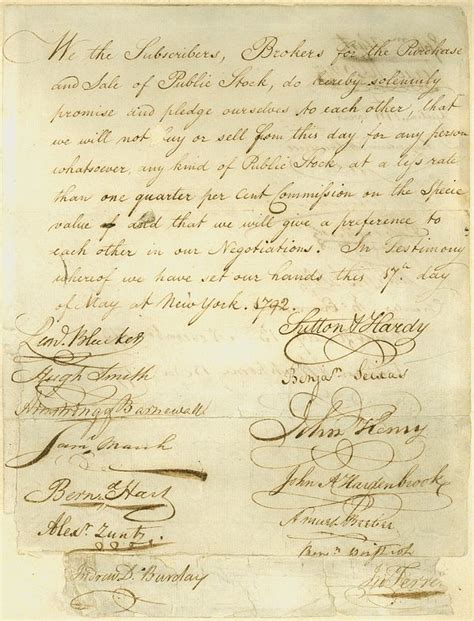 We the Subscribers, Brokers for the Purchase
and Sale of Public Stock, do hereby solemnly
promise and pledge ourselves to each other, that
we will not buy or sell from this day for any person
whatsoever, any kind of Public Stock, at a less rate
than one quarter per Cent Commission on the Specie
value of and that we will give a preference to
each other in our Negotiations. In Testimony
whereof we have set our hands this 17th day
of May at New York. 1792.
Leod. Bleecker
Hugh Smith
Armstrong & Barnewall
Saml. March
Bernd. Hart
Alexr. Zuntz
Andrew D. Barclay
Sutton & Hardy
Benjn. Seixas
John Henry
John A Hardenbrook
Amos Beebe